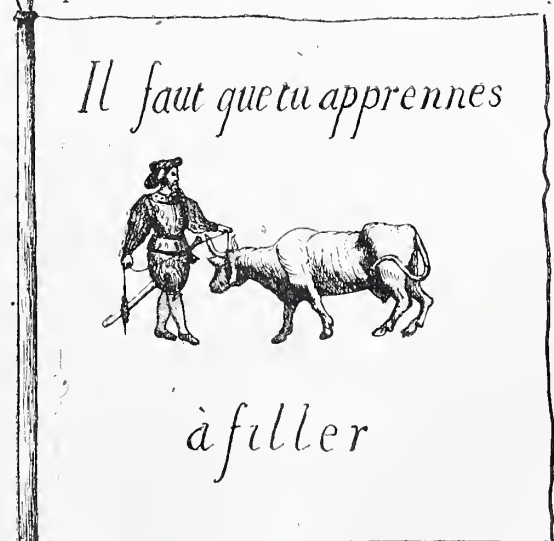 Il faut que tu apprennes
à filler